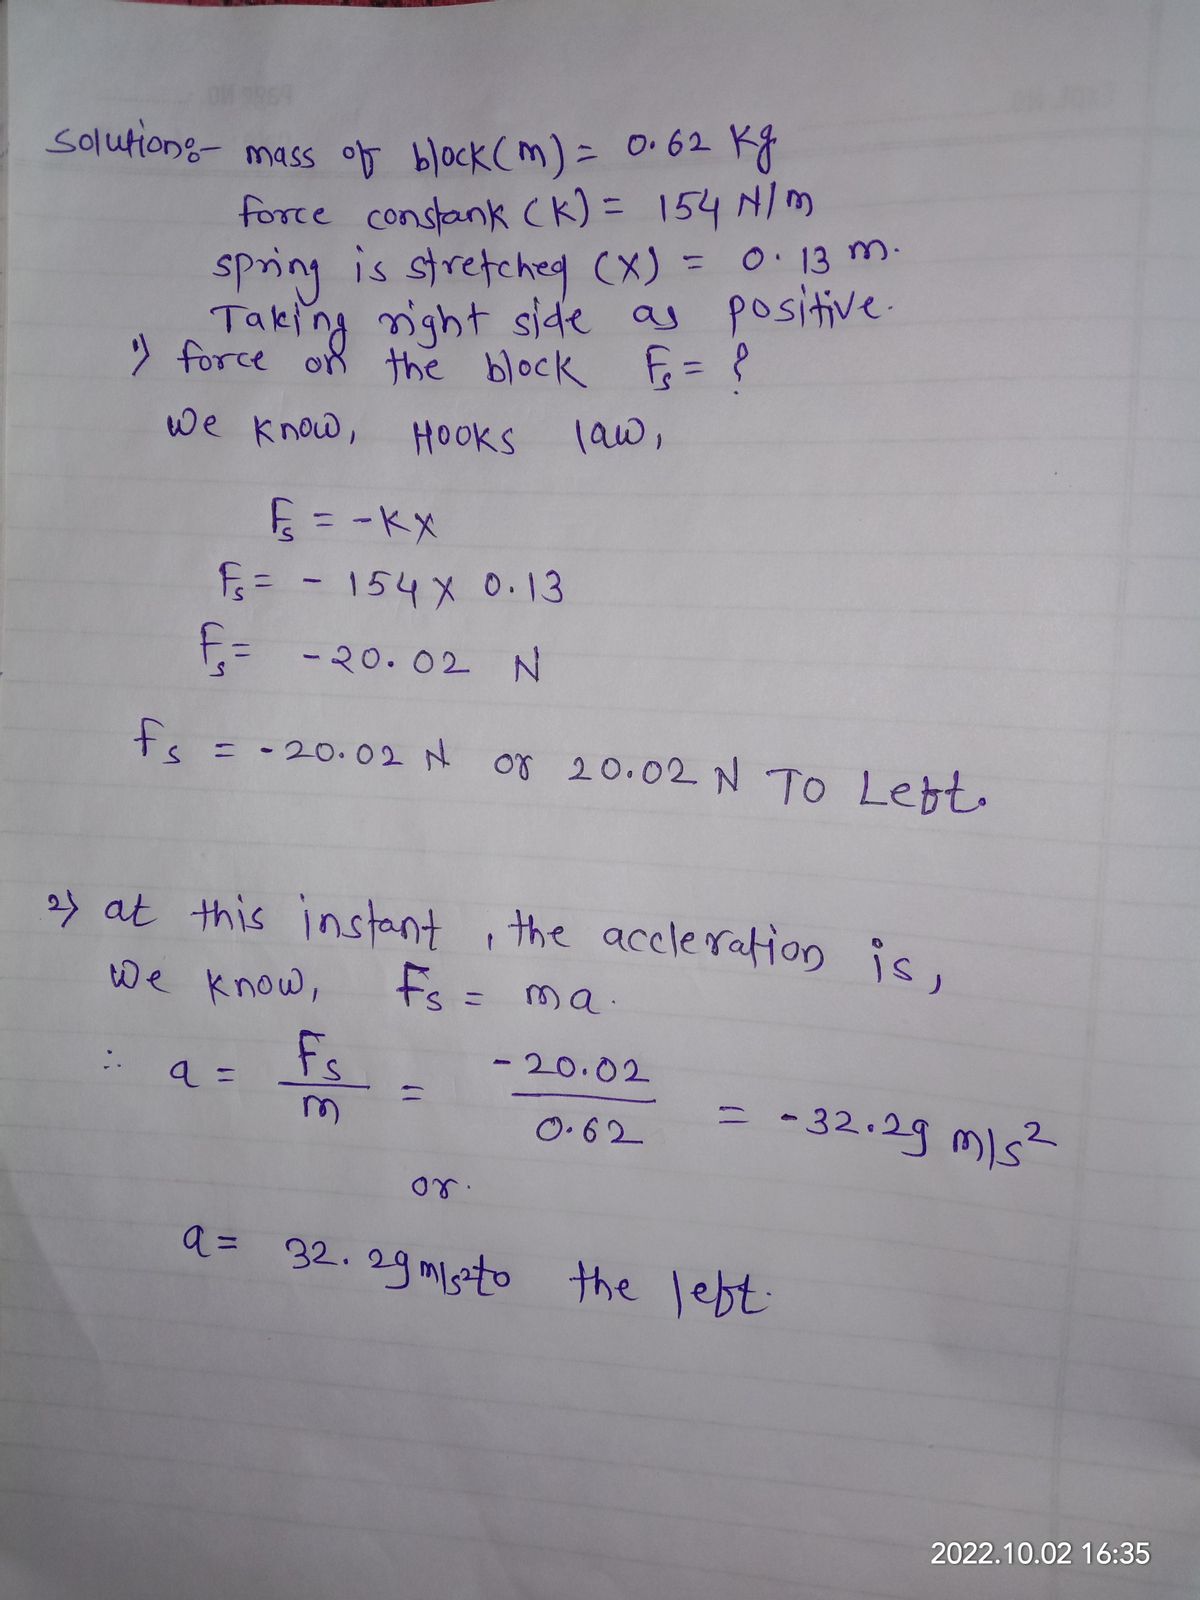 Solution:- mass of block(m) = 0.62 Kg
force constank (K) = 154 N/m
spring is stretched (x) = 0.13 m.
Taking right side as positive.
1) force on the block Fs = ?
We know, HOOKS law,
Fs = -Kx
Fs = - 154 x 0.13
Fs = -20.02 N
Fs = -20.02 N or 20.02 N TO Left.
2) at this instant, the accleration is,
We know, Fs = ma.
∴ a = Fs/m = -20.02/0.62 = -32.29 m/s²
or.
a = 32.29 m/s² to the left.
2022.10.02 16:35